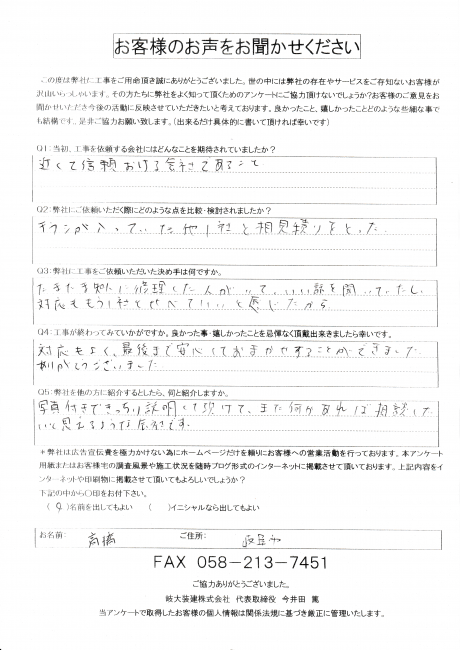 お客様のお声をお聞かせください
この度は弊社に工事をご用命頂き誠にありがとうございました。世の中には弊社の存在やサービスをご存知ないお客様が
沢山いらっしゃいます。その方たちに弊社をよく知って頂くためのアンケートにご協力頂けないでしょうか?お客様のご意見をお
聞かせいただき今後の活動に反映させていただきたいと考えております。良かったこと、嬉しかったことどのような些細な事で
も結構です。是非ご協力お願い致します。(出来るだけ具体的に書いて頂ければ幸いです)
Q1:当初、工事を依頼する会社にはどんなことを期待されていましたか?
近くて信頼おける会社であること
Q2:弊社にご依頼いただく際にどのような点を比較・検討されましたか?
チラシが入っていた他1社と相見積りをとった。
Q3:弊社に工事をご依頼いただいた決め手は何ですか。
たまたま先に修理した人がいて、いい話を聞いていたし、
対応ももう1社とくらべていいと感じたから
Q4:工事が終わってみていかがですか。良かった事・嬉しかったことを忌憚なく頂戴出来きましたら幸いです。
対応もよく、最後まで安心しておまかせすることができました
ありがとうございました
Q5:弊社を他の方に紹介するとしたら、何と紹介しますか。
写真付きできっちり説明して頂けて、また何かあれば相談した
いと思えるような会社です。
*弊社は広告宣伝費を極力かけない為にホームページだけを頼りにお客様への営業活動を行っております。本アンケート
用紙またはお客様宅の調査風景や施工状況を随時ブログ形式のインターネットに掲載させて頂いております。上記内容をイ
ンターネットや印刷物に掲載させて頂いてもよろしいでしょうか?
下記の中から〇印をお付下さい。
(〇)名前を出してもよい ( )イニシャルなら出してもよい
お名前: 高橋 ご住所: 岐阜市
FAX 058-213-7451
ご協力ありがとうございました。
岐大装建株式会社 代表取締役 今井田 篤
当アンケートで取得したお客様の個人情報は関係法規に基づき厳正に管理いたします。